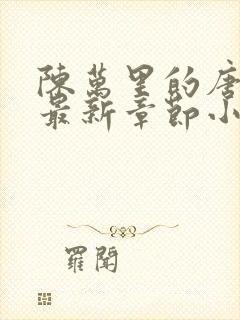 陳萬里的唐
最新章節小
羅聞